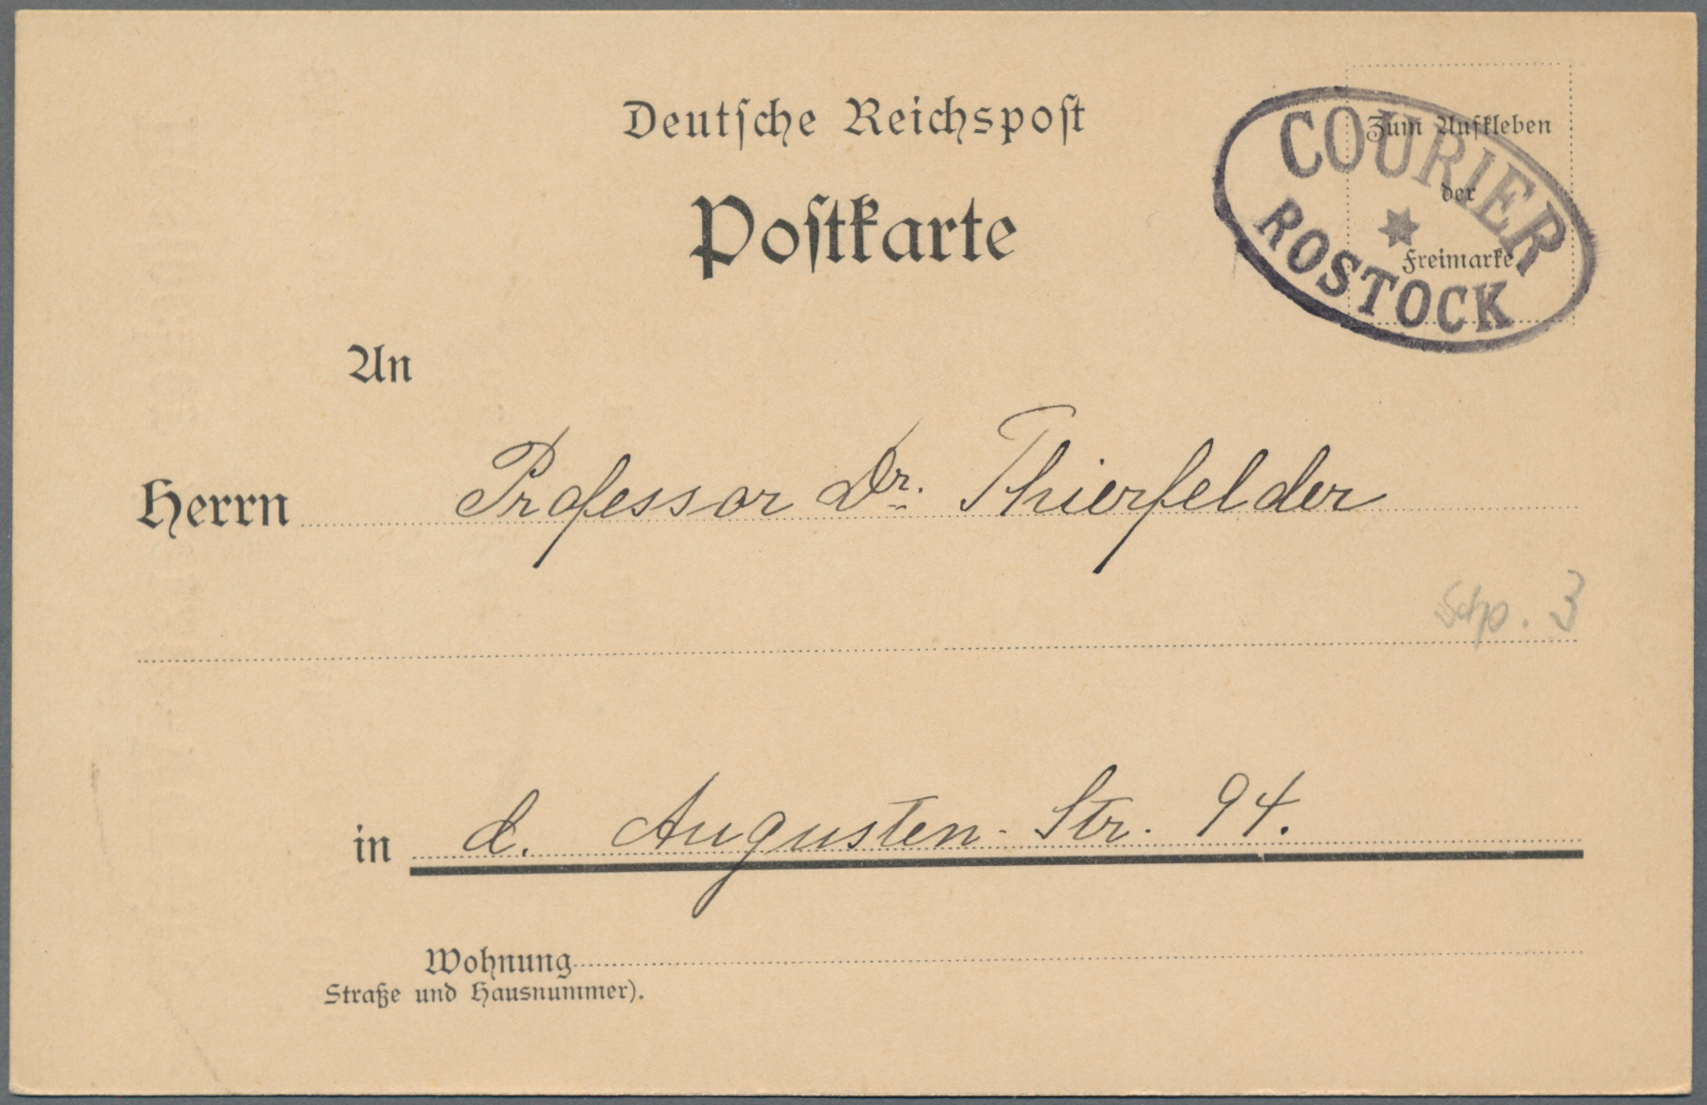 Deutsche Reichspost
Postkarte
Zum Aufkleben
der
Freimarke
COURIER
ROSTOCK
An
Herrn Professor Dr. Thierfelder
3
in d. Augusten-Str. 94.
Wohnung
Straße und Hausnummer).